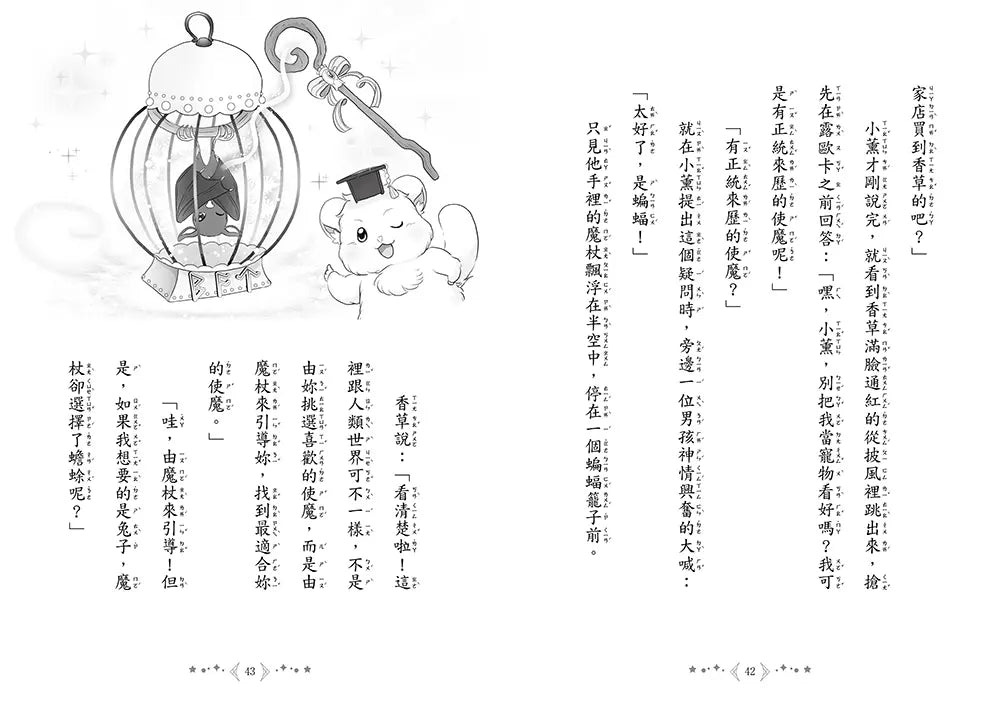 家店買到香草的吧？」
小薰才剛說完，就看到香草滿臉通紅的從披風裡跳出來，搶
先在露歐卡之前回答：「嘿，小薰，別把我當寵物看好嗎？我可
是有正統來歷的使魔呢！」
「有正統來歷的使魔？」
就在小薰提出這個疑問時，旁邊一位男孩神情興奮的大喊：
「太好了，是蝙蝠！」
只見他手裡的魔杖飄浮在半空中，停在一個蝙蝠籠子前。
42
BET
香草說：「看清楚啦！這
裡跟人類世界可不一樣，不是
由妳挑選喜歡的使魔，而是由
魔杖來引導妳，找到最適合妳
的使魔。」
「哇，由魔杖來引導！但
是，如果我想要的是兔子，魔
杖卻選擇了蟾蜍呢？」
43